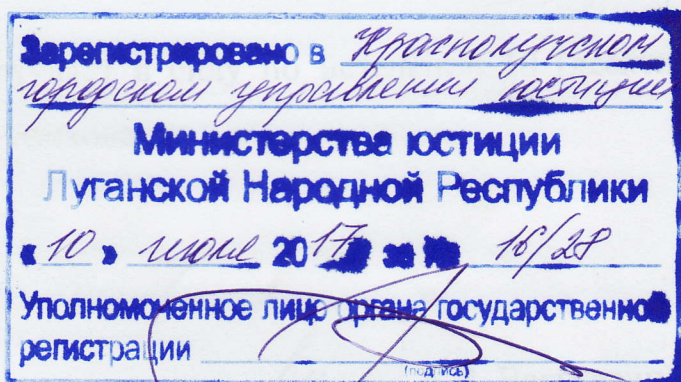 Зарегистрировано в Краснолучском
городском управлении юстиции
Министерства юстиции
Луганской Народной Республики
«10» 2017 за № 16/28
Уполномоченное лицо органа государственной
регистрации
(подпись)